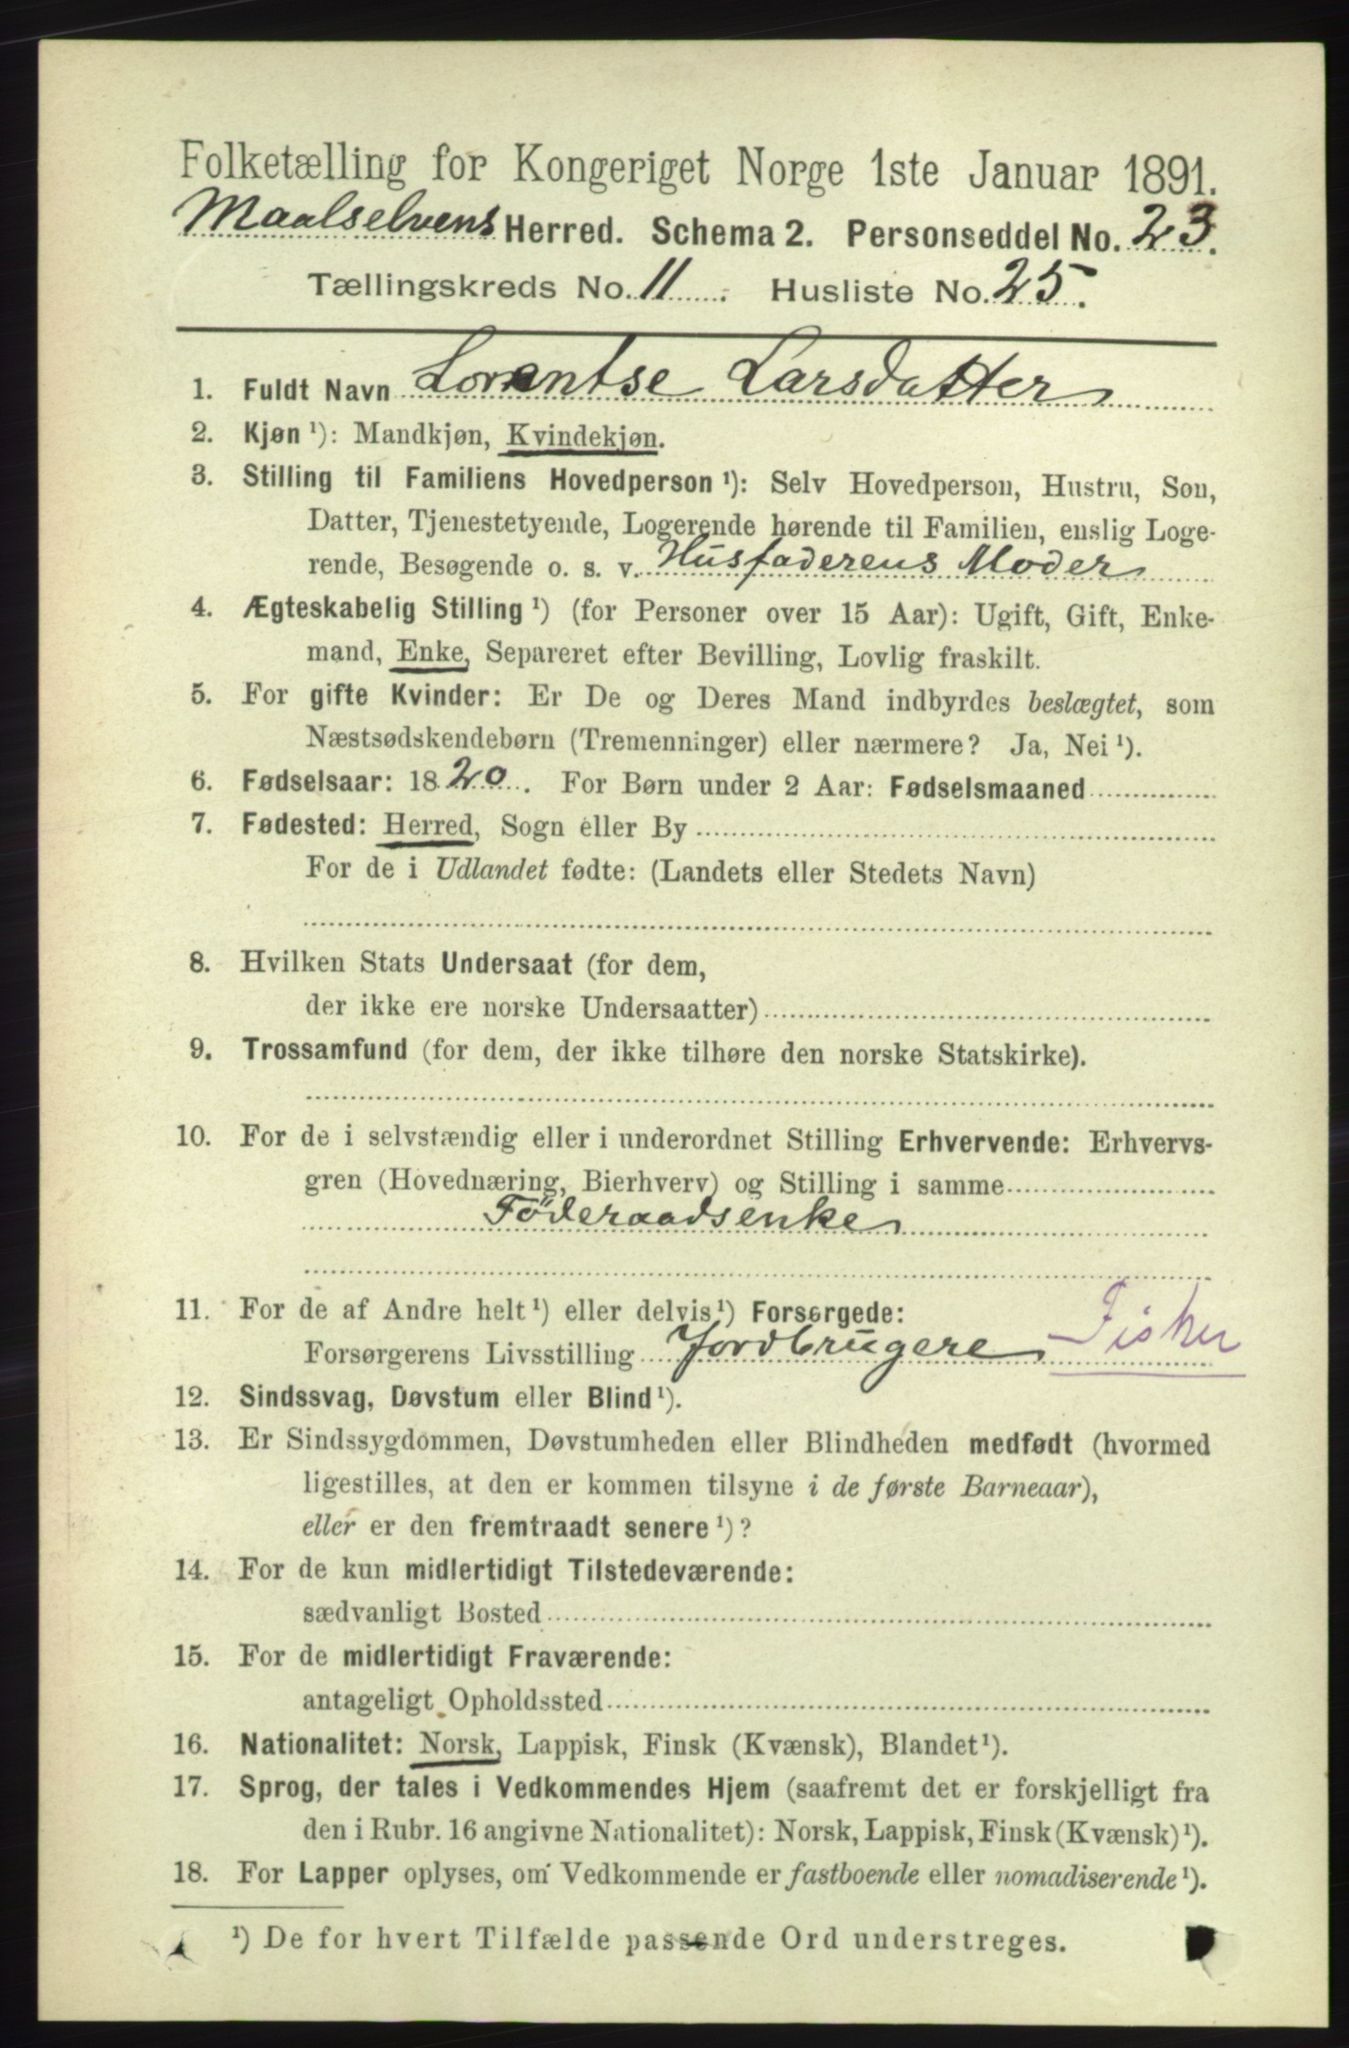 Folketælling for Kongeriget Norge 1ste Januar 1891.
Maalselvens Herred. Schema 2. Personseddel No. 23.
Tællingskreds No. 11. Husliste No. 25.
1. Fuldt Navn Lorentse Larsdatter
2. Kjøn ¹): Mandkjøn, Kvindekjøn.
3. Stilling til Familiens Hovedperson ¹): Selv Hovedperson, Hustru, Søn,
Datter, Tjenestetyende, Logerende hørende til Familien, enslig Loge-
rende, Besøgende o. s. v. Husfaderens Moder
4. Ægteskabelig Stilling ¹) (for Personer over 15 Aar): Ugift, Gift, Enke-
mand, Enke, Separeret efter Bevilling, Lovlig fraskilt.
5. For gifte Kvinder: Er De og Deres Mand indbyrdes beslægtet, som
Næstsødskendebørn (Tremenninger) eller nærmere? Ja, Nei ¹).
6. Fødselsaar: 1820. For Børn under 2 Aar: Fødselsmaaned
7. Fødested: Herred, Sogn eller By
For de i Udlandet fødte: (Landets eller Stedets Navn)
8. Hvilken Stats Undersaat (for dem,
der ikke ere norske Undersaatter)
9. Trossamfund (for dem, der ikke tilhøre den norske Statskirke).
10. For de i selvstændig eller i underordnet Stilling Erhvervende: Erhvervs-
gren (Hovednæring, Bierhverv) og Stilling i samme
Föderaadsenke
11. For de af Andre helt ¹) eller delvis ¹) Forsørgede:
Forsørgerens Livsstilling Jordbrugere Fisker
12. Sindssvag, Døvstum eller Blind ¹).
13. Er Sindssygdommen, Døvstumheden eller Blindheden medfødt (hvormed
ligestilles, at den er kommen tilsyne i de første Barneaar),
eller er den fremtraadt senere ¹)?
14. For de kun midlertidigt Tilstedeværende:
sædvanligt Bosted
15. For de midlertidigt Fraværende:
antageligt Opholdssted
16. Nationalitet: Norsk, Lappisk, Finsk (Kvænsk), Blandet ¹).
17. Sprog, der tales i Vedkommendes Hjem (saafremt det er forskjelligt fra
den i Rubr. 16 angivne Nationalitet): Norsk, Lappisk, Finsk (Kvænsk) ¹).
18. For Lapper oplyses, om Vedkommende er fastboende eller nomadiserende ¹).
¹) De for hvert Tilfælde passende Ord understreges.